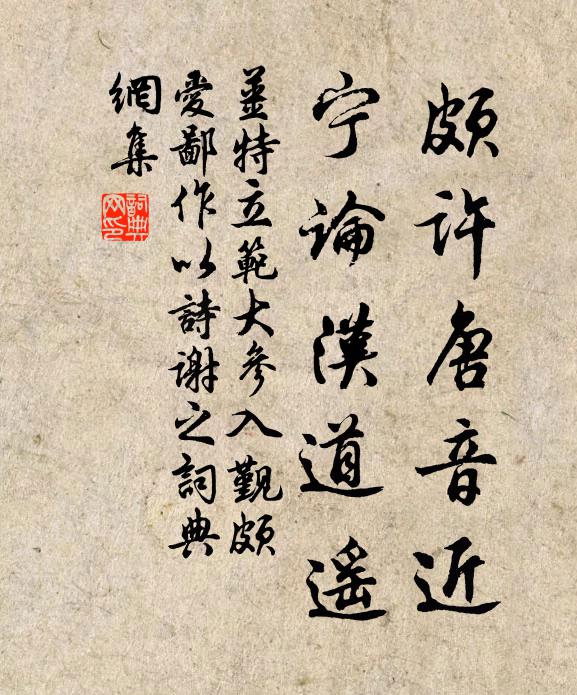 頗許唐音近
宁論漢道遥
姜特立範大參入觐頗
愛鄙作以詩谢之詞典
網集
詞典
网印